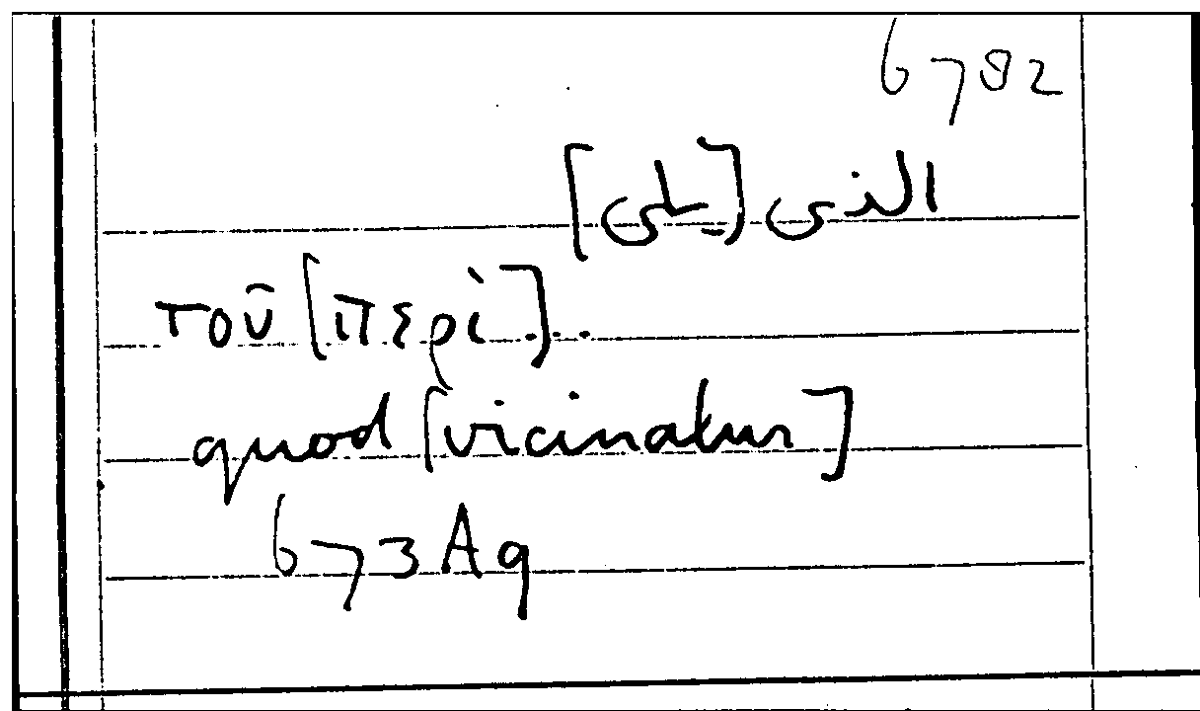 6782
الذى [يلى]
τοῦ [περὶ]...
quod [vicinatur]
673 A9